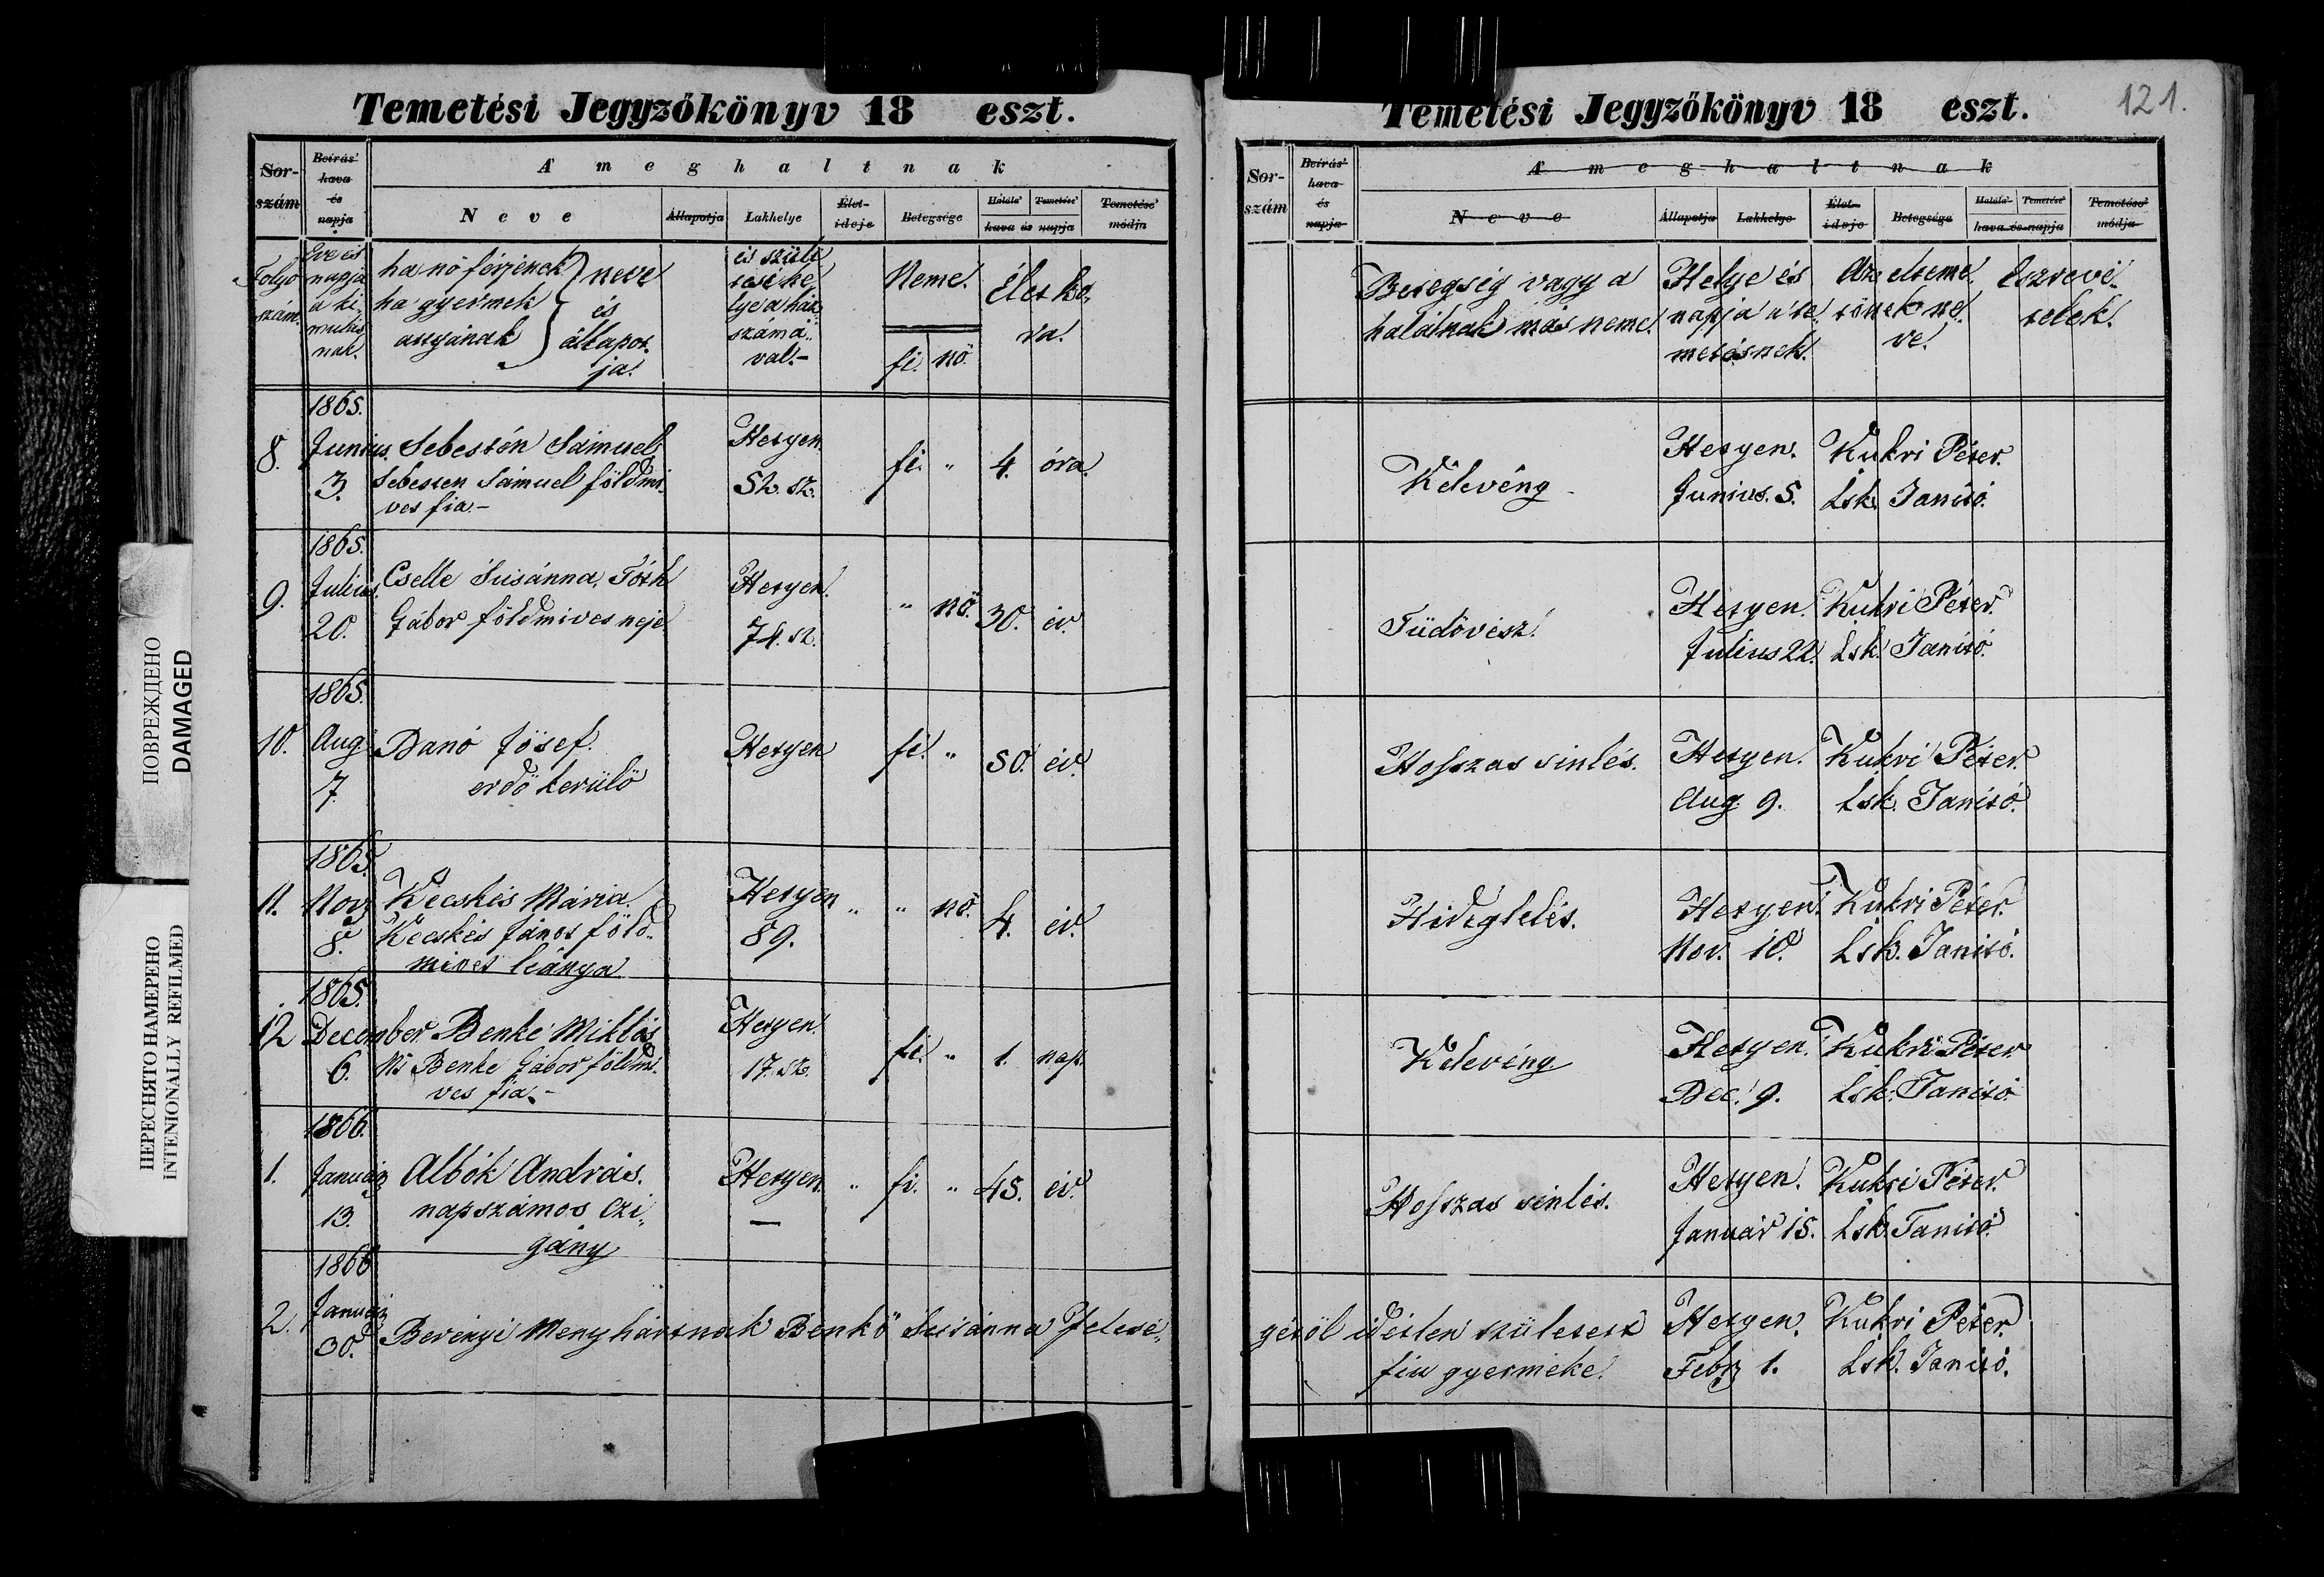 Temetési Jegyzőkönyv 18 eszt.
Sor-
szám
Beírás'
hava
és
napja
A' meghaltnak
Neve
Állapotja
Lakhelye
Élet-
ideje
Betegsége
Halála'
Temetése'
hava és napja
Temetése'
módja
Folyó
szám.
Éve és
napja
a ki-
mulás
nak.
ha nő férjének
ha gyermek
attyának
neve
és
állapot
ja.
és szüle
tési he,
lye a ház
számá,,
val.-
Neme.
fi. nő.
Élet ko,
ra.
8.
1865.
Junius
3.
Sebestén Sámuel
Sebesten Sámuel földmi-
ves fia.-
Hetyen
52. sz.
fi. " 4. óra.
9.
1865.
Julius.
20.
Cselle Susánna, Tóth
Gábor földmives neje
Hetyen.
74. sz.
" nő. 30. év.
10.
1865.
Aug
7.
Danó Jósef.
erdő kerülő
Hetyen
fi. " 50. év.
11.
1865.
Nov
8.
Kecskés Mária.
Kecskés János föld,,
mives leánya
Hetyen
89.
" " nő. 4. év.
12
1865.
December.
6.
Benke Miklós
Ns Benke Gábor földmi-
ves fia.-
Hetyen.
17. sz.
fi. " 1. nap.
1.
1866.
Január
13.
Albók András.
napszámos czi,,
gány
Hetyen.
—
" fi. " 45. év.
2.
1866
Január
30.
Berényi Menyhártnak Benkö Susánna Felesé,,
Temetési Jegyzőkönyv 18 eszt.
121.
Sor-
szám
Beírás'
hava
és
napja
A' meghaltnak
Neve
Állapotja
Lakhelye
Élet-
ideje
Betegsége
Halála'
Temetése'
hava és napja
Temetése'
módja
Betegség vagy a
halálnak más neme.
Helye és
napja a te,
metésnek.
Az elteme,
tönek ne,
ve.
Eszrevé,
telek.
Kelevény
Hetyen.
Junius. 5.
Kukri Péter.
Lsk. Tanitó.
Tüdővész.
Hetyen.
Julius 22.
Kukri Péter.
Lsk. Tanitó.
Hoszszas sinlés.
Hetyen.
Aug. 9.
Kukri Péter.
Lsk. Tanitó.
Hideglelés.
Hetyen.
Nov. 10.
Kukri Péter.
Lsk. Tanitó.
Kelevény
Hetyen.
Dec. 9.
Kukri Péter
Lsk. Tanitó
Hoszszas sinlés.
Hetyen.
Január 15.
Kukri Péter.
Lsk. Tanitó.
gétöl idétlen születestt
fiu gyermeke.
Hetyen.
Feb 1.
Kukri Péter.
Lsk. Tanitó.
ПОВРЕЖДЕНО
DAMAGED
ПЕРЕСНЯТО НАМЕРЕНО
INTENIONALLY REFILMED